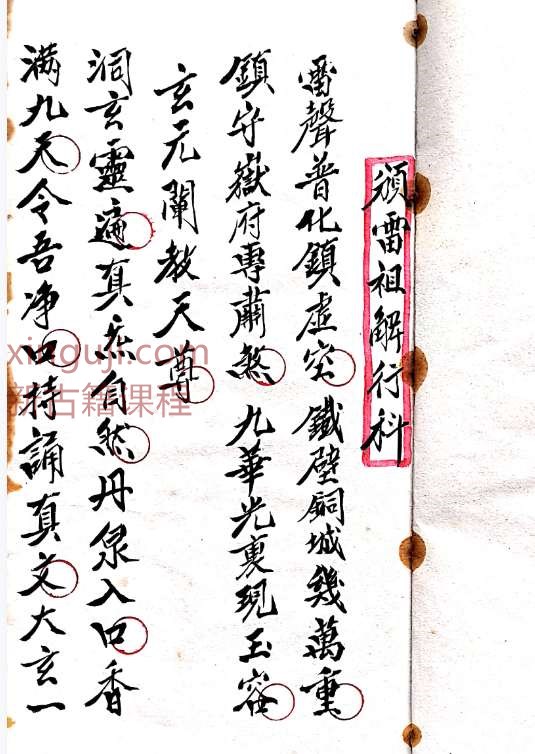 頒雷祖解行科
雷聲普化鎮虛空鐵壁銅城幾萬重
鎮守嶽府專肅煞九華光裏現玉容
玄元闡教天尊
洞玄靈遍真炁自然丹泉入口香
滿九天令吾净口持誦真文大玄一
xinguji.com
新古籍课程